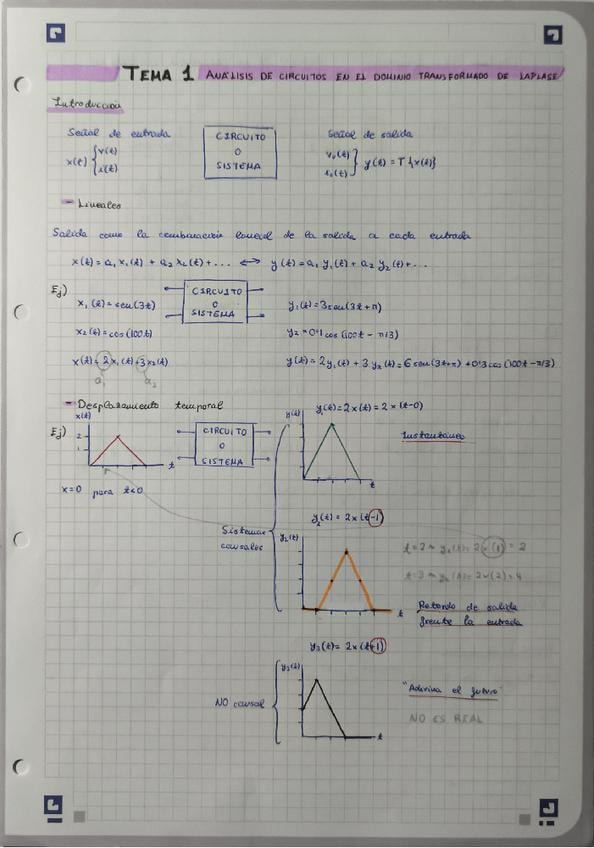 TEMA 1 ANÁLISIS DE CIRCUITOS EN EL DOMINIO TRANSFORMADO DE LAPLASE
Introducción
Señal de entrada
x(t) { v(t)
i(t)
CIRCUITO
O
SISTEMA
Señal de salida
v₀(t)
i₀(t) } y(t) = T {x(t)}
- Lineales
Salida como la combinación lineal de la salida a cada entrada
x(t) = a₁ x₁(t) + a₂ x₂(t) + ... ⟺ y(t) = a₁ y₁(t) + a₂ y₂(t) + ...
Ej)
x₁(t) = sen(3t)
CIRCUITO
O
SISTEMA
y₁(t) = 3 sen(3t + π)
x₂(t) = cos(100t)
y₂ = 0'1 cos(100t - π/3)
x(t) = 2x₁(t) + 3x₂(t)
a₁ a₂
y(t) = 2y₁(t) + 3 y₂(t) = 6 sen(3t+π) + 0'3 cos(100t - π/3)
- Desplazamiento temporal
Ej)
x(t)
2
1
t
x=0 para t<0
CIRCUITO
O
SISTEMA
y₁(t) = 2x(t) = 2x(t-0)
y(t)
t
Instantáneo
Sistemas
causales
y₂(t) = 2x(t-1)
y₂(t)
t
t=2 → y₂(t) = 2x(1) = 2
t=3 → y₂(t) = 2x(2) = 4
Retardo de salida
frente la entrada
y₃(t) = 2x(t+1)
NO causal
y₃(t)
t
"Adivina el futuro"
NO ES REAL